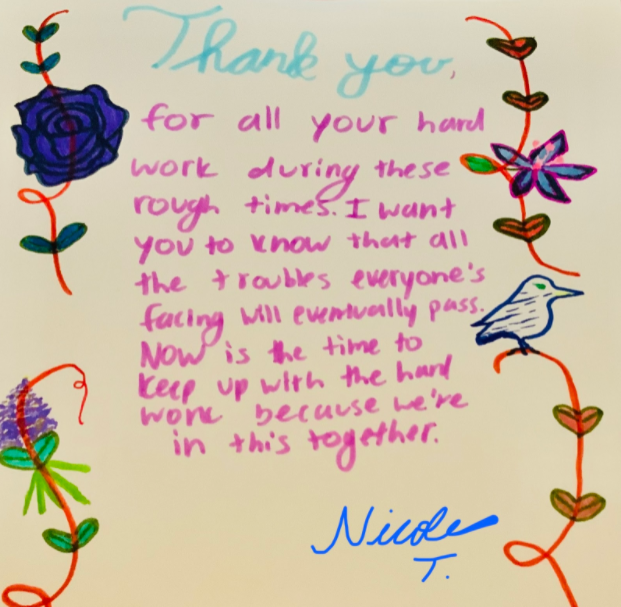 Thank you,
for all your hard
work during these
rough times. I want
you to know that all
the troubles everyone's
facing will eventually pass.
Now is the time to
keep up with the hard
work because we're
in this together.
Nicole
T.